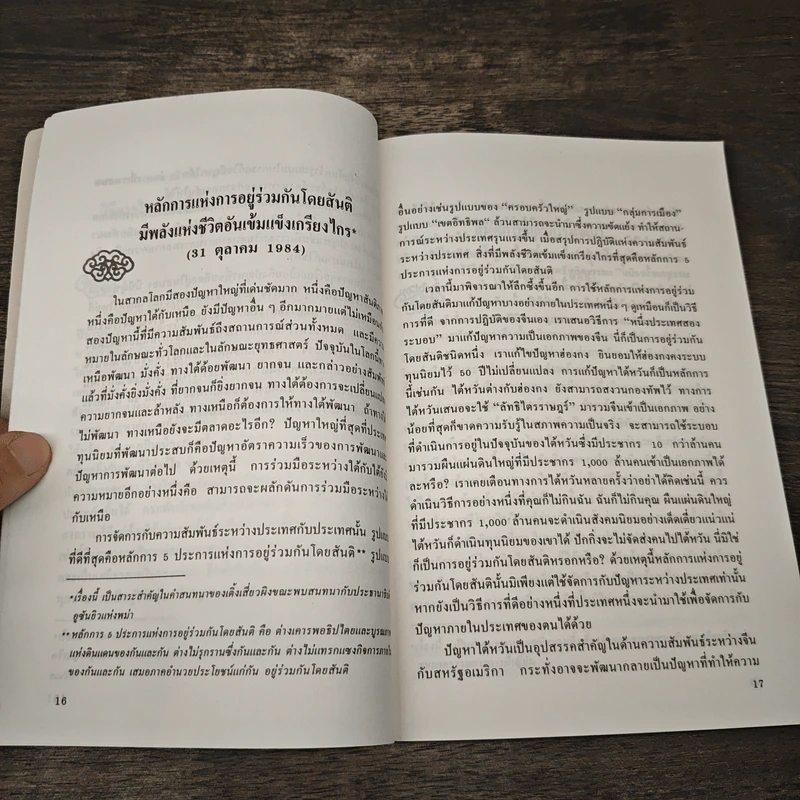 หลักการแห่งการอยู่ร่วมกันโดยสันติ
มีพลังแห่งชีวิตอันเข้มแข็งเกรียงไกร*
(31 ตุลาคม 1984)
ในสากลโลกมีสองปัญหาใหญ่ที่เด่นชัดมาก หนึ่งคือปัญหาสันติภาพ
หนึ่งคือปัญหาใต้กับเหนือ ยังมีปัญหาอื่น ๆ อีกมากมายแต่ไม่เหมือนกับ
สองปัญหานี้ที่มีความสัมพันธ์ถึงสถานการณ์ส่วนทั้งหมด และมีความ
หมายในลักษณะทั่วโลกและในลักษณะยุทธศาสตร์ ปัจจุบันในโลกนี้ทาง
เหนือพัฒนา มั่งคั่ง ทางใต้ด้อยพัฒนา ยากจน และกล่าวอย่างสัมพัทธ์
แล้วที่มั่งคั่งยิ่งมั่งคั่ง ที่ยากจนก็ยิ่งยากจน ทางใต้ต้องการจะเปลี่ยนแปลง
ความยากจนและล้าหลัง ทางเหนือก็ต้องการให้ทางใต้พัฒนา ถ้าทางใต้
ไม่พัฒนา ทางเหนือยังจะมีตลาดอะไรอีก? ปัญหาใหญ่ที่สุดที่ประเทศ
ทุนนิยมที่พัฒนาประสบก็คือปัญหาอัตราความเร็วของการพัฒนาและ
ปัญหาการพัฒนาต่อไป ด้วยเหตุนี้ การร่วมมือระหว่างใต้กับใต้ก็มี
ความหมายอีกอย่างหนึ่งคือ สามารถจะผลักดันการร่วมมือระหว่างใต้
กับเหนือ
การจัดการกับความสัมพันธ์ระหว่างประเทศกับประเทศนั้น รูปแบบ
ที่ดีที่สุดคือหลักการ 5 ประการแห่งการอยู่ร่วมกันโดยสันติ** รูปแบบ
*เรื่องนี้ เป็นสาระสำคัญในคำสนทนาของเติ้งเสี่ยวผิงขณะพบสนทนากับประธานาธิบดี
อูซันยิวแห่งพม่า
**หลักการ 5 ประการแห่งการอยู่ร่วมกันโดยสันติ คือ ต่างเคารพอธิปไตยและบูรณภาพ
แห่งดินแดนของกันและกัน ต่างไม่รุกรานซึ่งกันและกัน ต่างไม่แทรกแซงกิจการภายใน
ของกันและกัน เสมอภาคอำนวยประโยชน์แก่กัน อยู่ร่วมกันโดยสันติ
16
อื่นอย่างเช่นรูปแบบของ "ครอบครัวใหญ่" รูปแบบ "กลุ่มการเมือง"
รูปแบบ "เขตอิทธิพล" ล้วนสามารถจะนำมาซึ่งความขัดแย้ง ทำให้สถาน-
การณ์ระหว่างประเทศรุนแรงขึ้น เมื่อสรุปการปฏิบัติแห่งความสัมพันธ์
ระหว่างประเทศ สิ่งที่มีพลังชีวิตเข้มแข็งเกรียงไกรที่สุดคือหลักการ 5
ประการแห่งการอยู่ร่วมกันโดยสันติ
เวลานี้มาพิจารณาให้ลึกซึ้งขึ้นอีก การใช้หลักการแห่งการอยู่ร่วม
กันโดยสันติมาแก้ปัญหาบางอย่างภายในประเทศหนึ่ง ๆ ดูเหมือนก็เป็นวิธี
การที่ดี จากการปฏิบัติของจีนเอง เราเสนอวิธีการ "หนึ่งประเทศสอง
ระบอบ" มาแก้ปัญหาความเป็นเอกภาพของจีน นี่ก็เป็นการอยู่ร่วมกัน
โดยสันติชนิดหนึ่ง เราแก้ไขปัญหาฮ่องกง ยินยอมให้ฮ่องกงคงระบบ
ทุนนิยมไว้ 50 ปีไม่เปลี่ยนแปลง การแก้ปัญหาไต้หวันก็เป็นหลักการ
นี้เช่นกัน ไต้หวันต่างกับฮ่องกง ยังสามารถสงวนกองทัพไว้ ทางการ
ไต้หวันเสนอจะใช้ "ลัทธิไตรราษฎร์" มารวมจีนเข้าเป็นเอกภาพ อย่าง
น้อยที่สุดก็ขาดความรับรู้ในสภาพความเป็นจริง จะสามารถใช้ระบอบ
ที่ดำเนินการอยู่ในปัจจุบันของไต้หวันซึ่งมีประชากร 10 กว่าล้านคน
มารวมผืนแผ่นดินใหญ่ที่มีประชากร 1,000 ล้านคนเข้าเป็นเอกภาพได้
ละหรือ? เราเคยเตือนทางการไต้หวันหลายครั้งว่าอย่าได้คิดเช่นนี้ ควร
ดำเนินวิธีการอย่างหนึ่งที่คุณก็ไม่กินฉัน ฉันก็ไม่กินคุณ ผืนแผ่นดินใหญ่
ที่มีประชากร 1,000 ล้านคนจะดำเนินสังคมนิยมอย่างเด็ดเดี่ยวแน่วแน่
ไต้หวันก็ดำเนินทุนนิยมของเขาได้ ปักกิ่งจะไม่จัดส่งคนไปไต้หวัน นี่มิใช่
ก็เป็นการอยู่ร่วมกันโดยสันติหรอกหรือ? ด้วยเหตุนี้หลักการแห่งการอยู่
ร่วมกันโดยสันตินั้นมิเพียงแต่ใช้จัดการกับปัญหาระหว่างประเทศเท่านั้น
หากยังเป็นวิธีการที่ดีอย่างหนึ่งที่ประเทศหนึ่งจะนำมาใช้เพื่อจัดการกับ
ปัญหาภายในประเทศของตนได้ด้วย
ปัญหาไต้หวันเป็นอุปสรรคสำคัญในด้านความสัมพันธ์ระหว่างจีน
กับสหรัฐอเมริกา กระทั่งอาจจะพัฒนากลายเป็นปัญหาที่ทำให้ความ
17